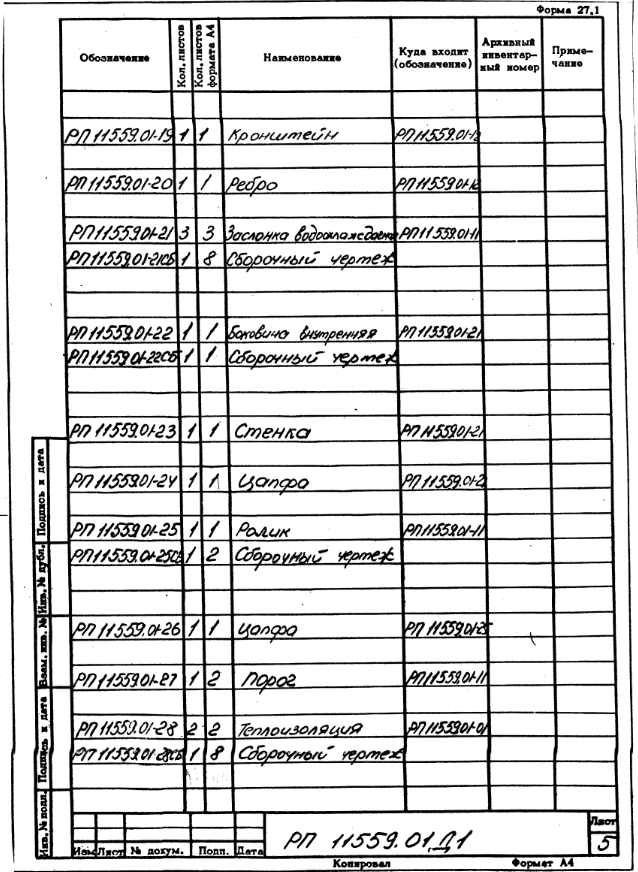 Форма 27.1
Обозначение Кол. листов Кол. листов формата А4 Наименование Куда входит (обозначение) Архивный инвентар-ный номер Приме-чание
РП 11559.01-19 1 1 Кронштейн РП11559.01-12
РП 11559.01-20 1 1 Ребро РП11559.01-12
РП11559.01-21 3 3 Заслонка водоохлаждаемая РП11559.01-11
РП11559.01-21СБ 1 8 Сборочный чертеж
РП11559.01-22 1 1 Боковина внутренняя РП11559.01-21
РП11559.01-22СБ 1 1 Сборочный чертеж
РП 11559.01-23 1 1 Стенка РП11559.01-21
РП 11559.01-24 1 1 Цапфа РП11559.01-2
РП 11559.01-25 1 1 Ролик РП11559.01-11
РП11559.01-25СБ 1 2 Сборочный чертеж
РП 11559.01-26 1 1 Цапфа РП 11559.01-25
РП 11559.01-27 1 2 Порог РП11559.01-11
РП 11559.01-28 2 2 Теплоизоляция РП11559.01-01
РП 11559.01-28СБ 1 8 Сборочный чертеж
Инв. № подл. Подпись и дата Взам. инв. № Инв. № дубл. Подпись и дата
РП 11559.01Д1
Лист
5
Изм Лист № докум. Подп. Дата
Копировал Формат А4